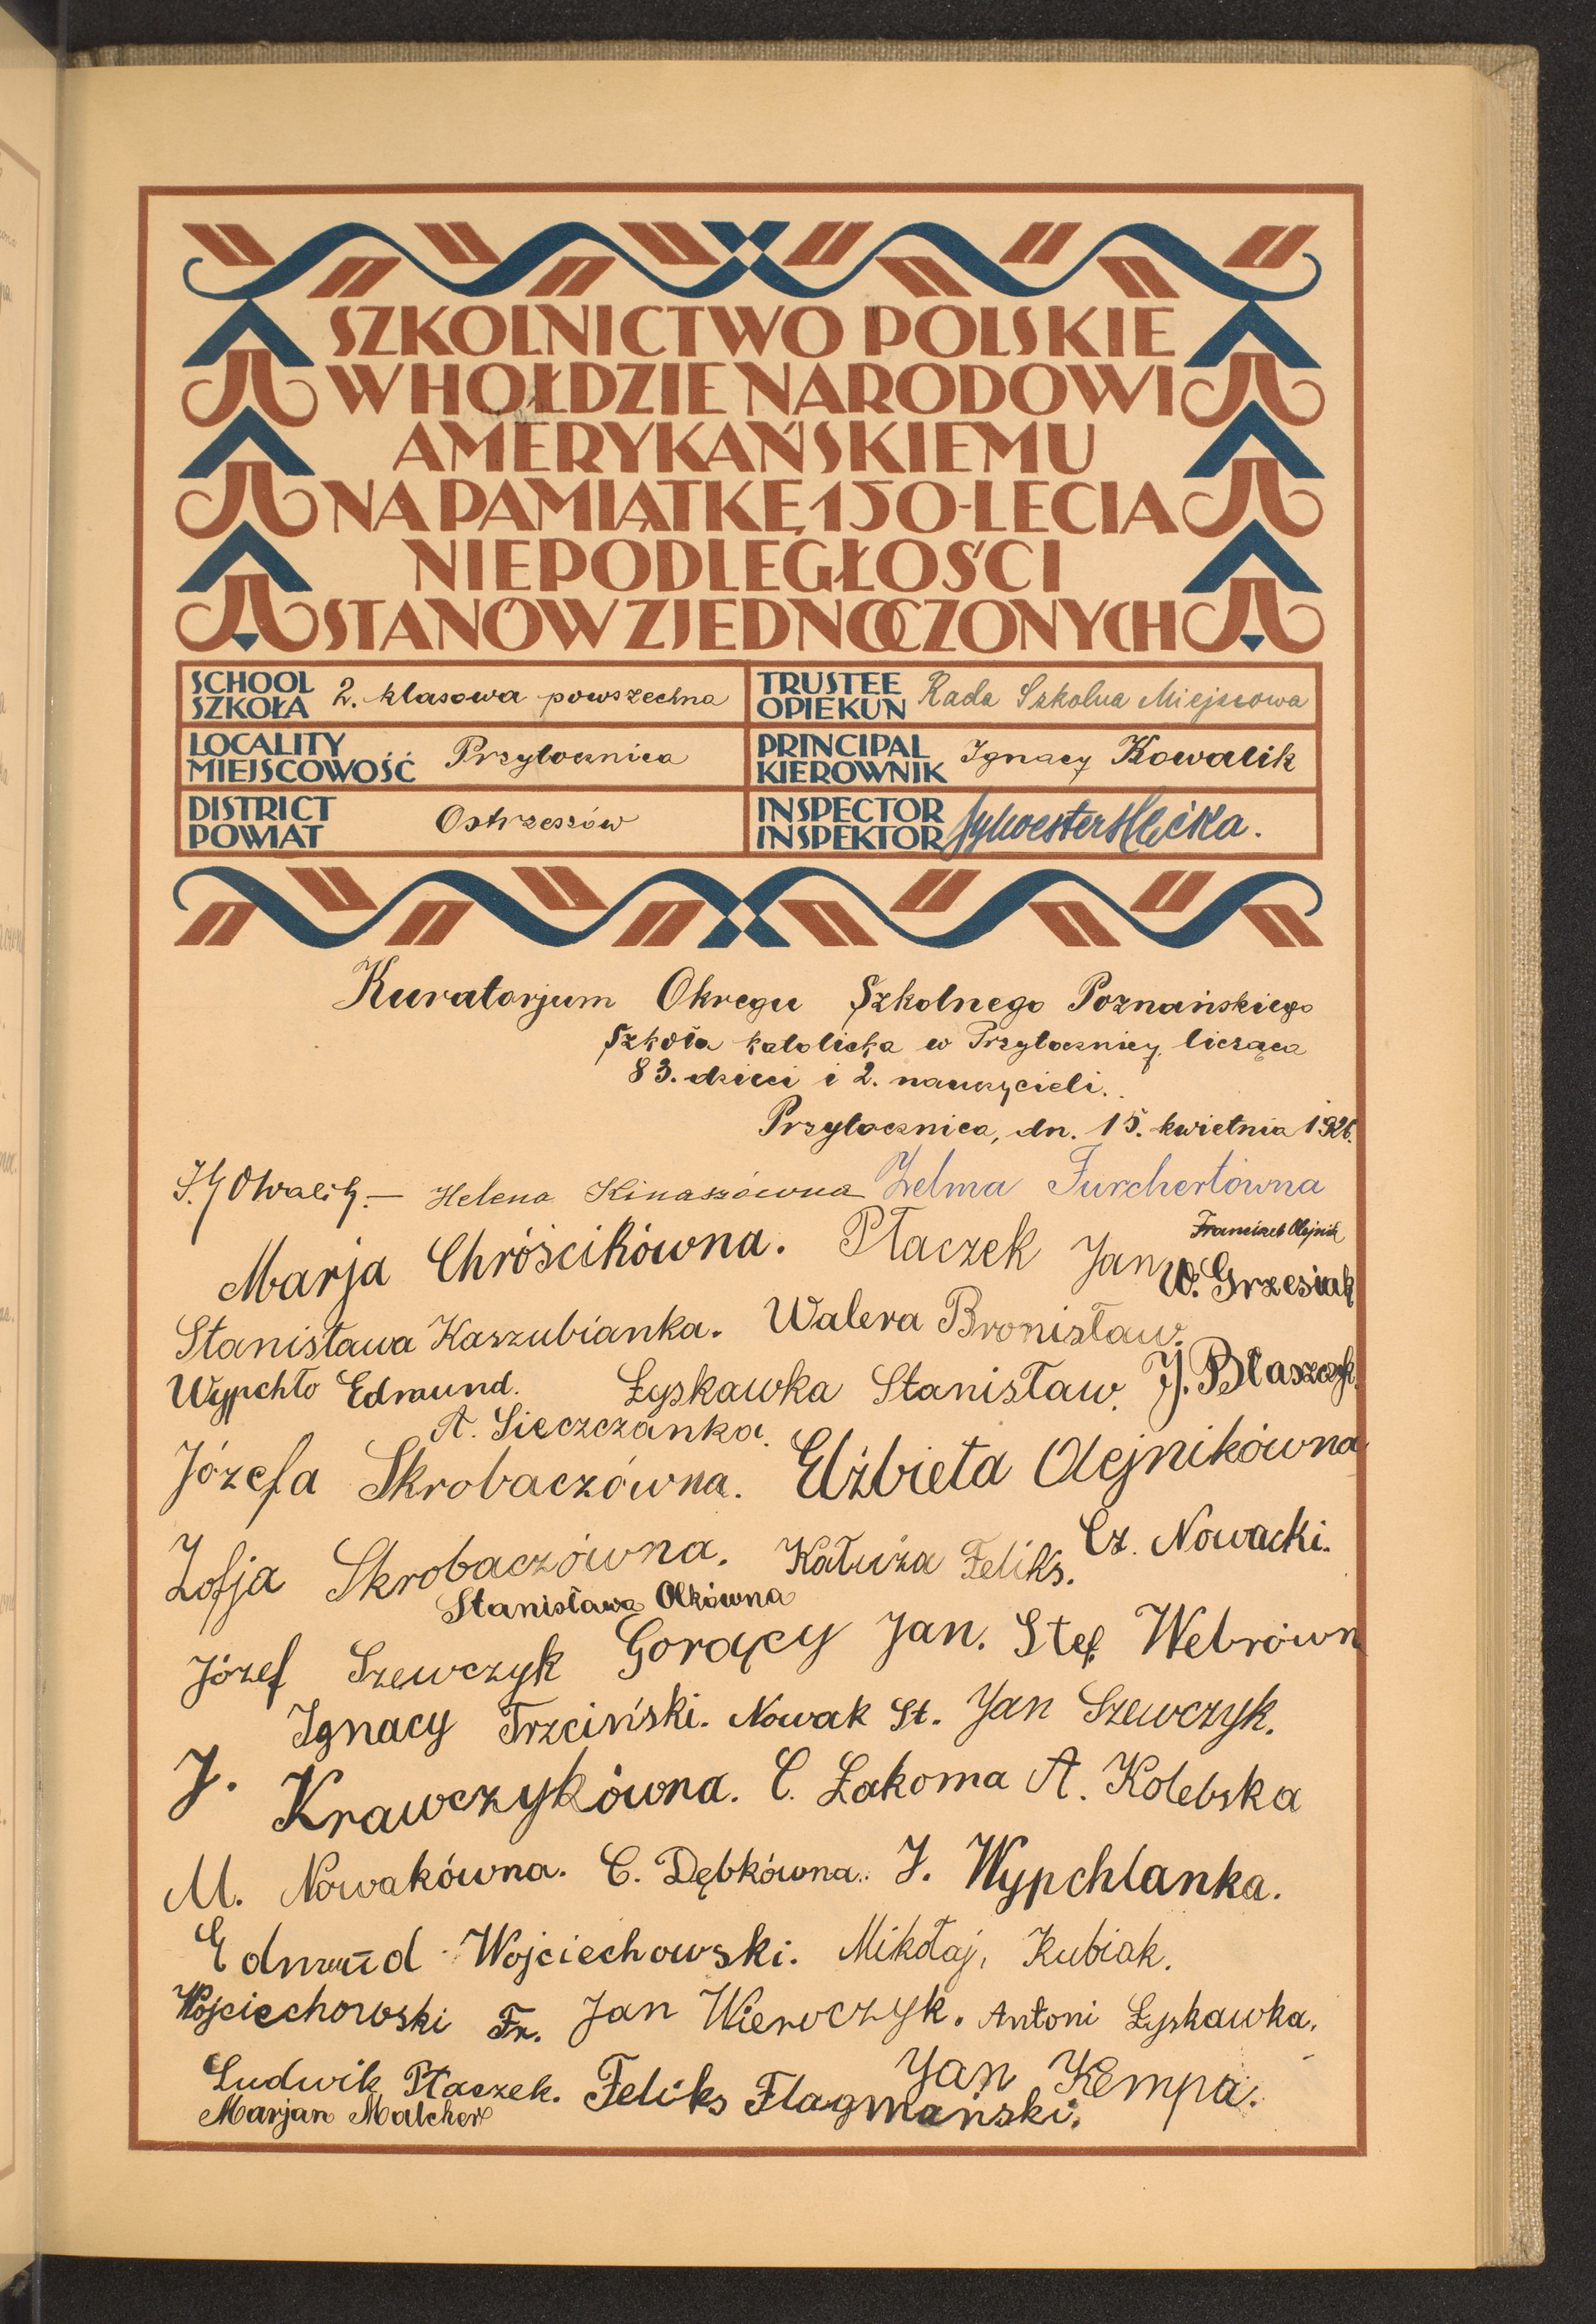 SZKOLNICTWO POLSKIE
W HOŁDZIE NARODOWI
AMERYKAŃSKIEMU
NA PAMIĄTKĘ 150-LECIA
NIEPODLEGŁOŚCI
STANÓW ZJEDNOCZONYCH
SCHOOL SZKOŁA 2. klasowa powszechna
TRUSTEE OPIEKUN Rada Szkolna Miejscowa
LOCALITY MIEJSCOWOŚĆ Przytocznica
PRINCIPAL KIEROWNIK Ignacy Kowalik
DISTRICT POWIAT Ostrzeszów
INSPECTOR INSPEKTOR Sylwester
Kuratorjum Okręgu Szkolnego Poznańskiego
Szkoła katolicka w Przytocznicy licząca
83. dzieci i 2. nauczycieli.
Przytocznica, dn. 15. kwietnia 1926.
I. Kowalik. — Helena Kinaszówna Zelma Furchertówna
Franciszek Olejnik
Marja Chróścikówna. Ptaczek Jan W. Grzesiak
Stanisława Kaszubianka. Walera Bronisław.
Wypchło Edmund. Łyskawka Stanisław. J. Błaszczyk.
A. Sieczczanka.
Józefa Skrobaczówna. Elżbieta Olejnikówna
Zofja Skrobaczówna. Kałuża Feliks. Cz. Nowacki.
Stanisława Olkówna
Józef Szewczyk Gorący Jan. Stef. Webrówn
Ignacy Trzciński. Nowak St. Jan Szewczyk.
J. Krawczykówna. C. Łakoma A. Kolebska
M. Nowakówna. C. Dębkówna. J. Wypchlanka.
Edmund Wojciechowski. Mikołaj, Kubiak.
Wojciechowski Fr. Jan Wierwczyk. Antoni Łyskawka.
Ludwik Ptaczek. Feliks Flagmański. Jan Kempa.
Marjan Malcher